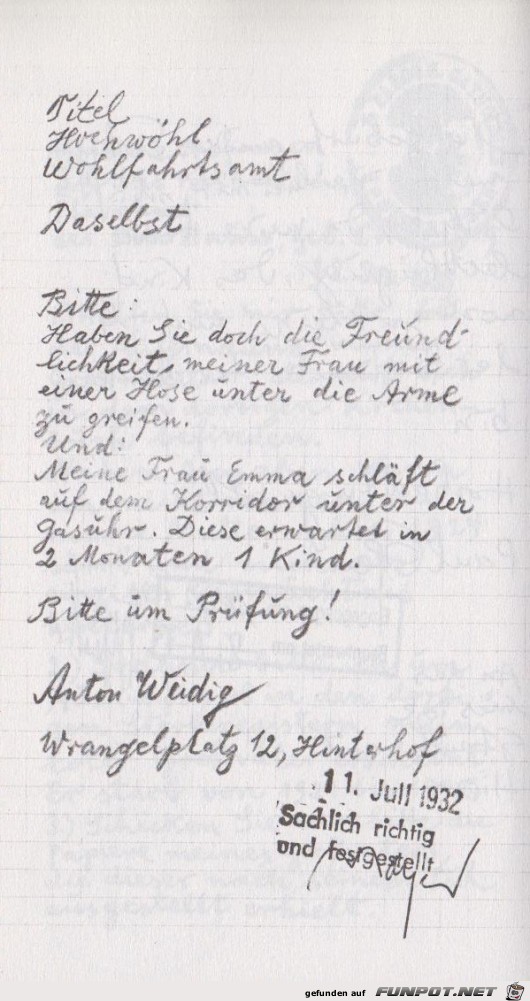 Titel
Hochwöhl
Wohlfahrtsamt
Daselbst
Bitte:
Haben Sie doch die Freund-
lichkeit, meiner Frau mit
einer Hose unter die Arme
zu greifen.
Und:
Meine Frau Emma schläft
auf dem Korridor unter der
Gasuhr. Diese erwartet in
2 Monaten 1 Kind.
Bitte um Prüfung!
Anton Weidig
Wrangelplatz 12, Hinterhof
11. Juli 1932
Sachlich richtig
und festgestellt
gefunden auf FUNPOT.NET